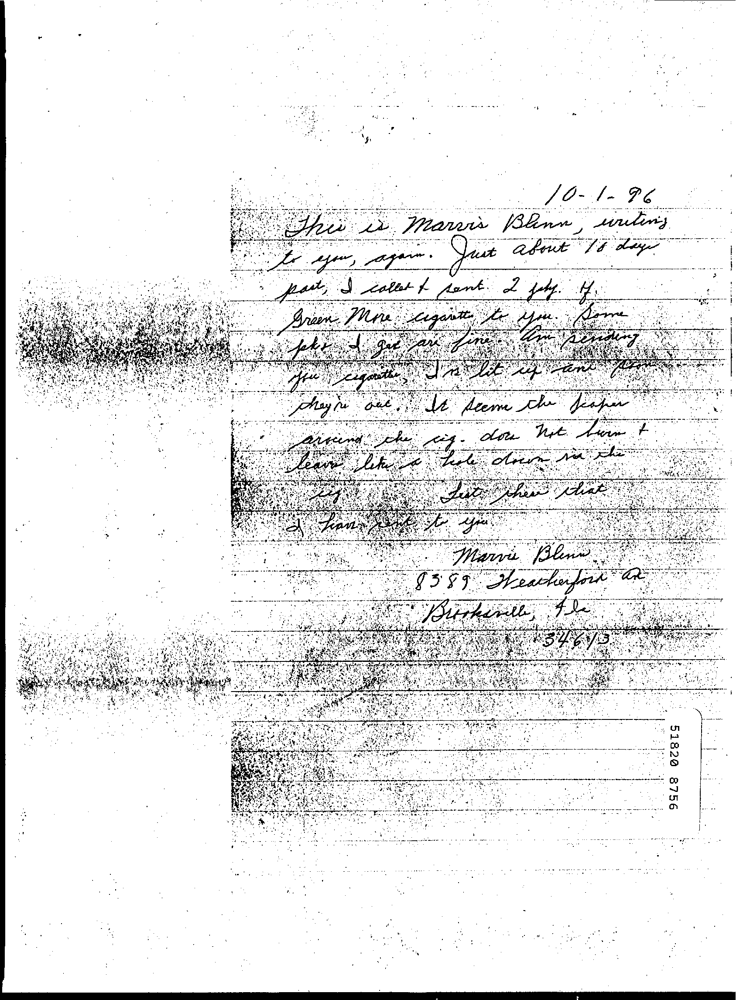 10-1-96
This is Marvis Blinn, writing
to you, again. Just about 10 days
past, I called & sent 2 pkg. of
Green More cigarette to you. Some
pks I get are fine. Am sending
you cigarette, I've lit up and
they're out. It seem the paper
around the cig. does not burn &
leave like a hole down in the
cig
I have sent to you
Marvis Blinn
8389 Weatherford
Brooksville, Fla
34613
51820 8756